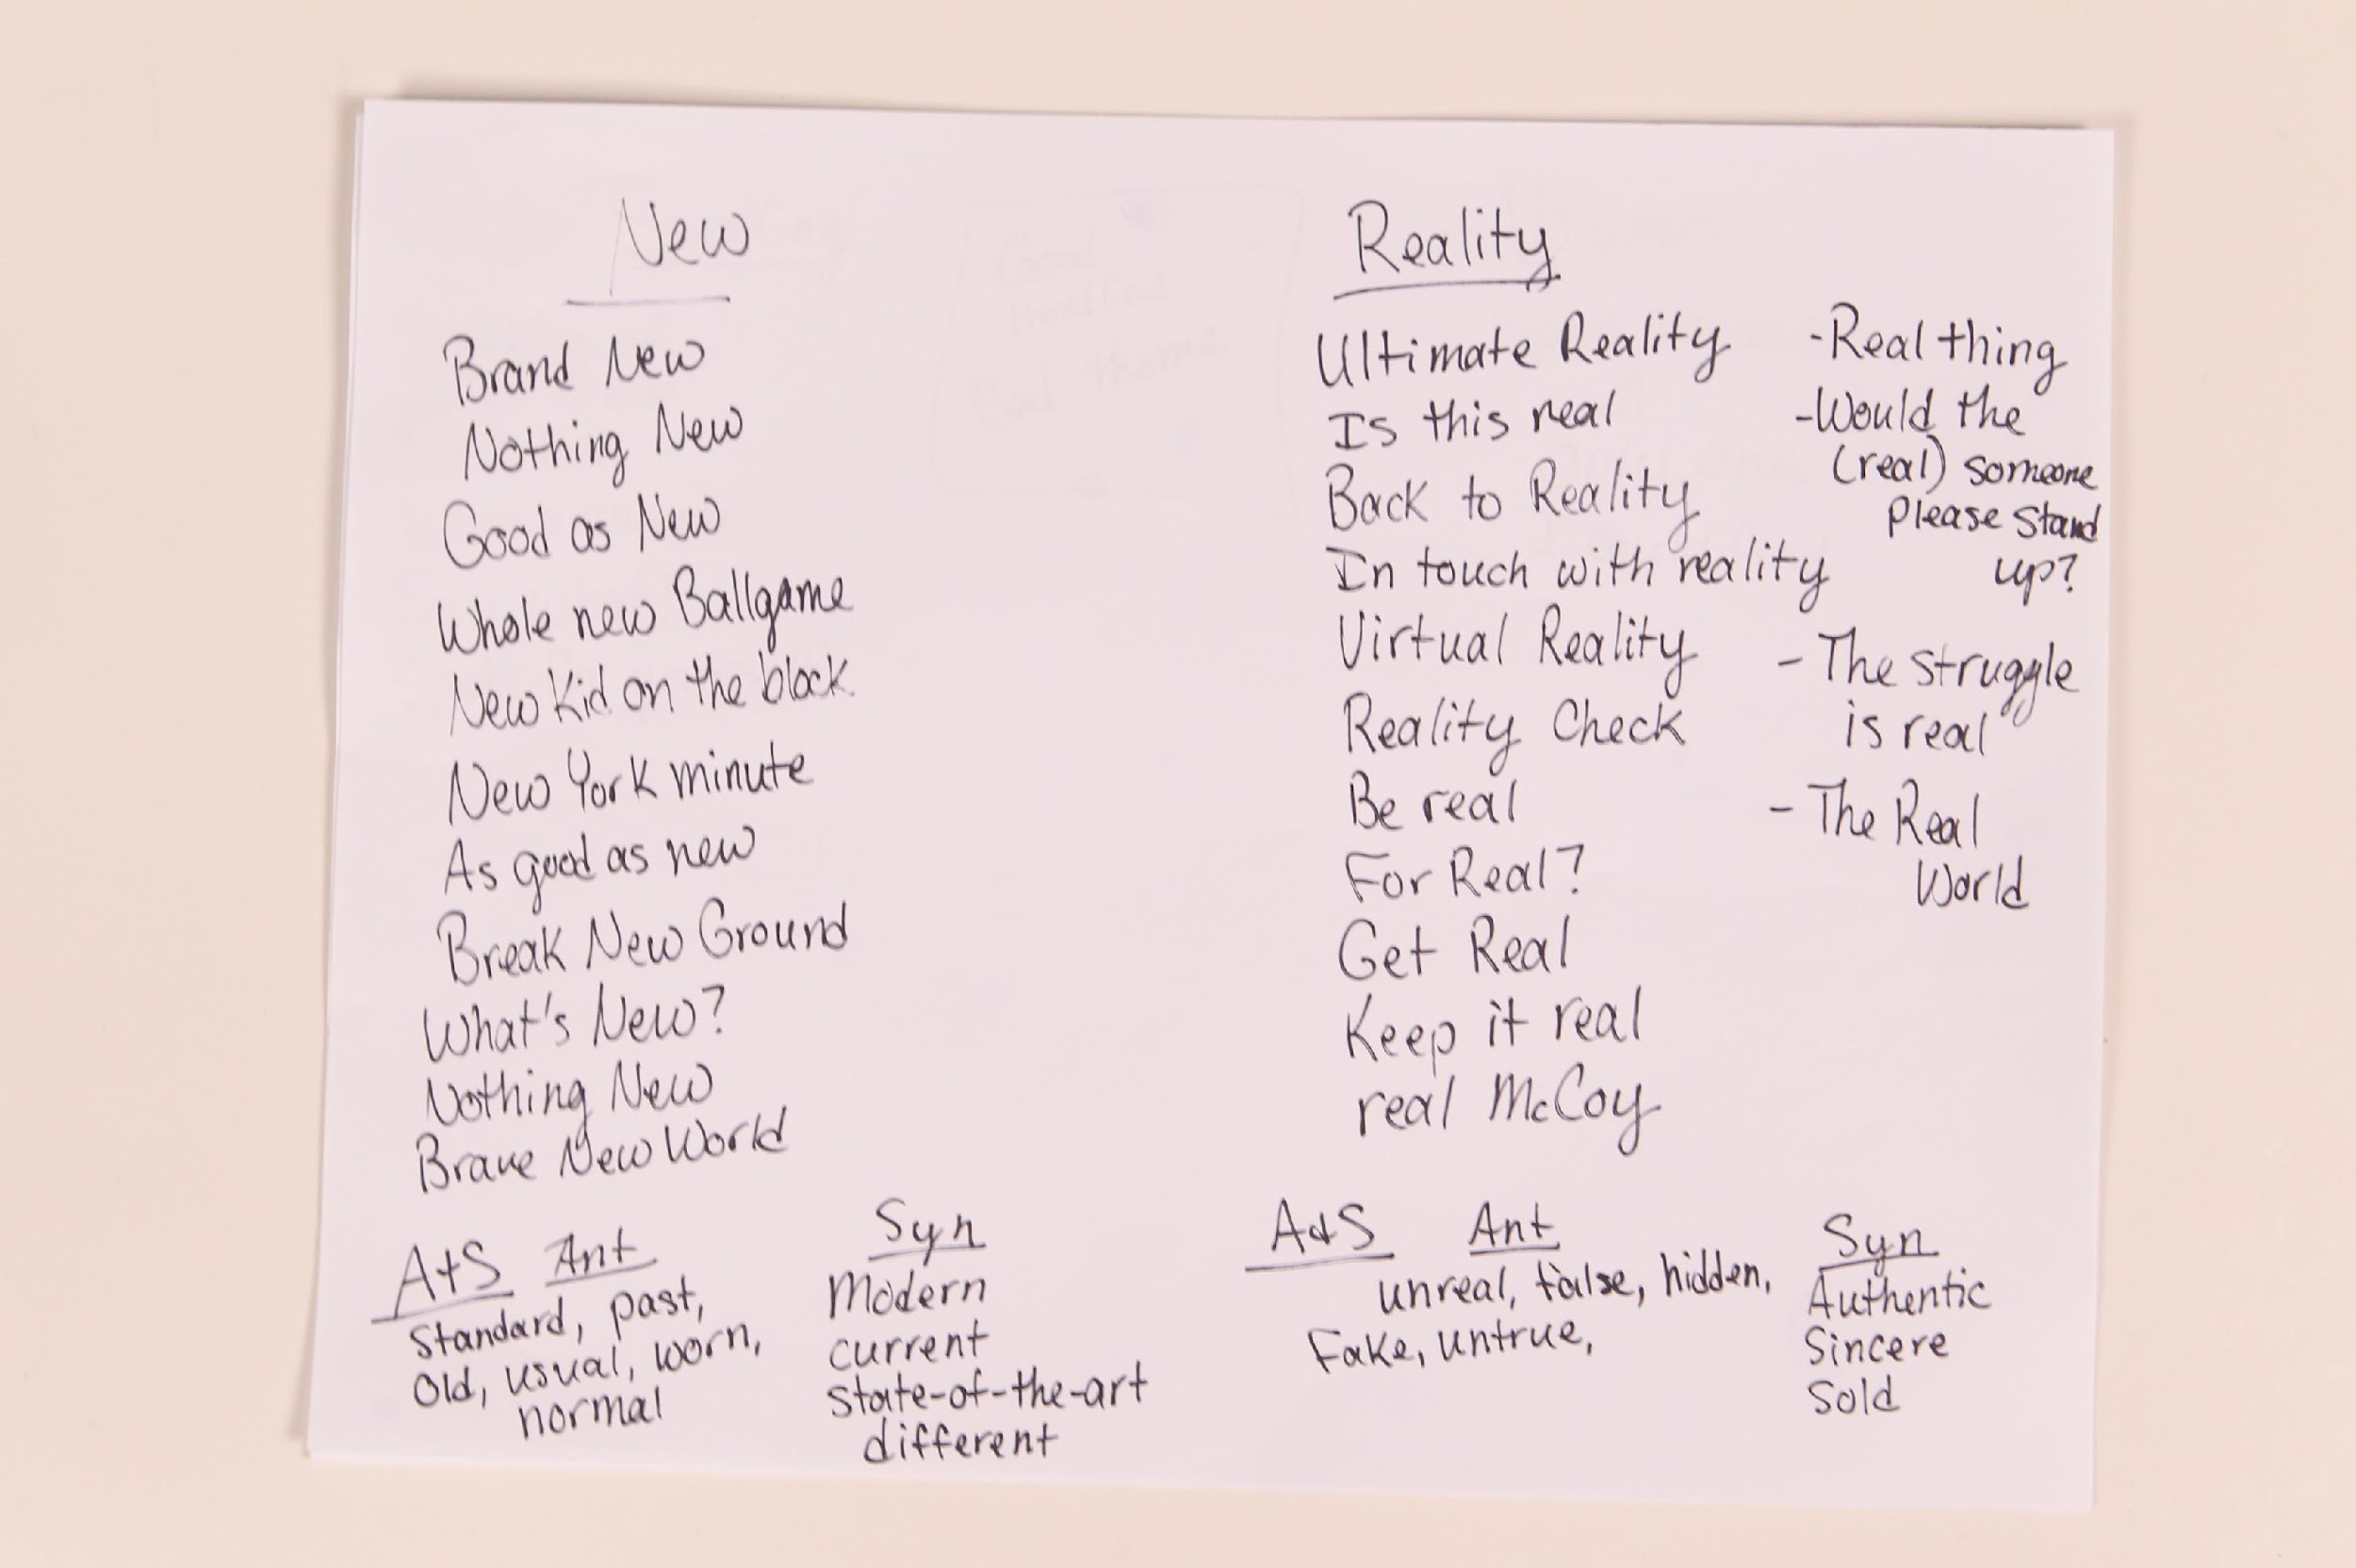 New
Brand New
Nothing New
Good as New
Whole new Ballgame
New Kid on the block.
New York minute
As good as new
Break New Ground
What's New?
Nothing New
Brave New World
A+S Ant
Standard, past,
Old, usual, worn,
normal
Syn
Modern
current
State-of-the-art
different
Reality
Ultimate Reality
Is this real
Back to Reality
In touch with reality
Virtual Reality
Reality Check
Be real
For Real?
Get Real
Keep it real
real McCoy
-Real thing
-Would the
(real) someone
Please Stand
up?
- The struggle
is real
- The Real
World
A+S Ant
unreal, false, hidden,
Fake, untrue,
Syn
Authentic
Sincere
Sold